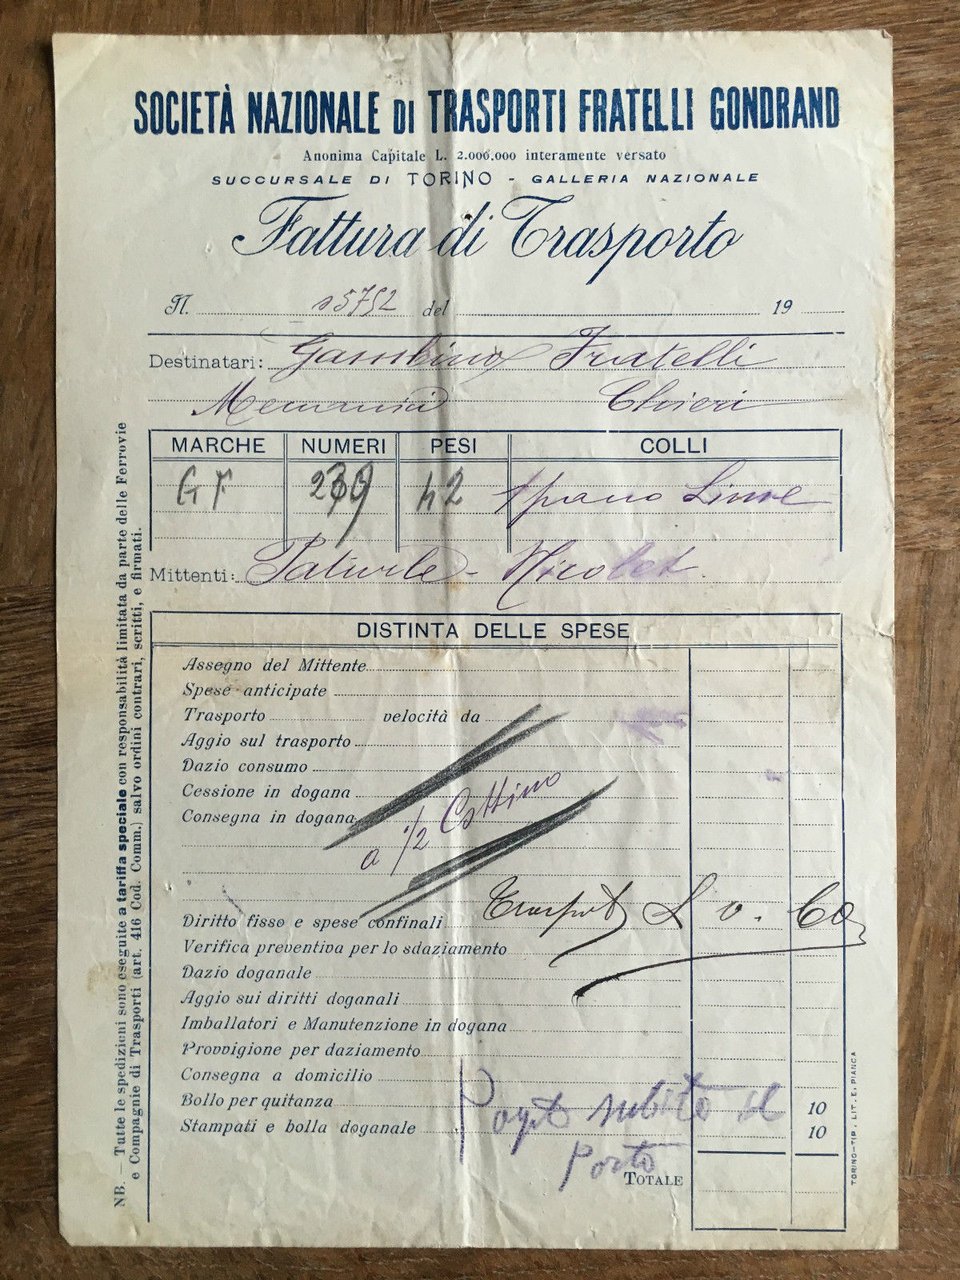 SOCIETÀ NAZIONALE DI TRASPORTI FRATELLI GONDRAND
Anonima Capitale L. 2.000.000 interamente versato
SUCCURSALE DI TORINO - GALLERIA NAZIONALE
Fattura di Trasporto
N. 15752 del 19
Destinatari: Gambino Fratelli
Chieri
MARCHE NUMERI PESI COLLI
GF 239 42 1 pacco
Mittenti: Paturle - Nicolet
DISTINTA DELLE SPESE
Assegno del Mittente
Spese anticipate
Trasporto velocità da
Aggio sul trasporto
Dazio consumo
Cessione in dogana
Consegna in dogana
a 1/2 Cottino
Diritto fisso e spese confinali Trasporto L 0.60
Verifica preventiva per lo sdaziamento
Dazio doganale
Aggio sui diritti doganali
Imballatori e Manutenzione in dogana
Provvigione per daziamento
Consegna a domicilio
Bollo per quitanza 10
Stampati e bolla doganale 10
Pagato subito il
porto
TOTALE
NB. — Tutte le spedizioni sono eseguite a tariffa speciale con responsabilità limitata da parte delle Ferrovie
e Compagnie di Trasporti (art. 416 Cod. Comm.) salvo ordini contrari, scritti, e firmati.
TORINO-TIP. LIT. E. PIANCA